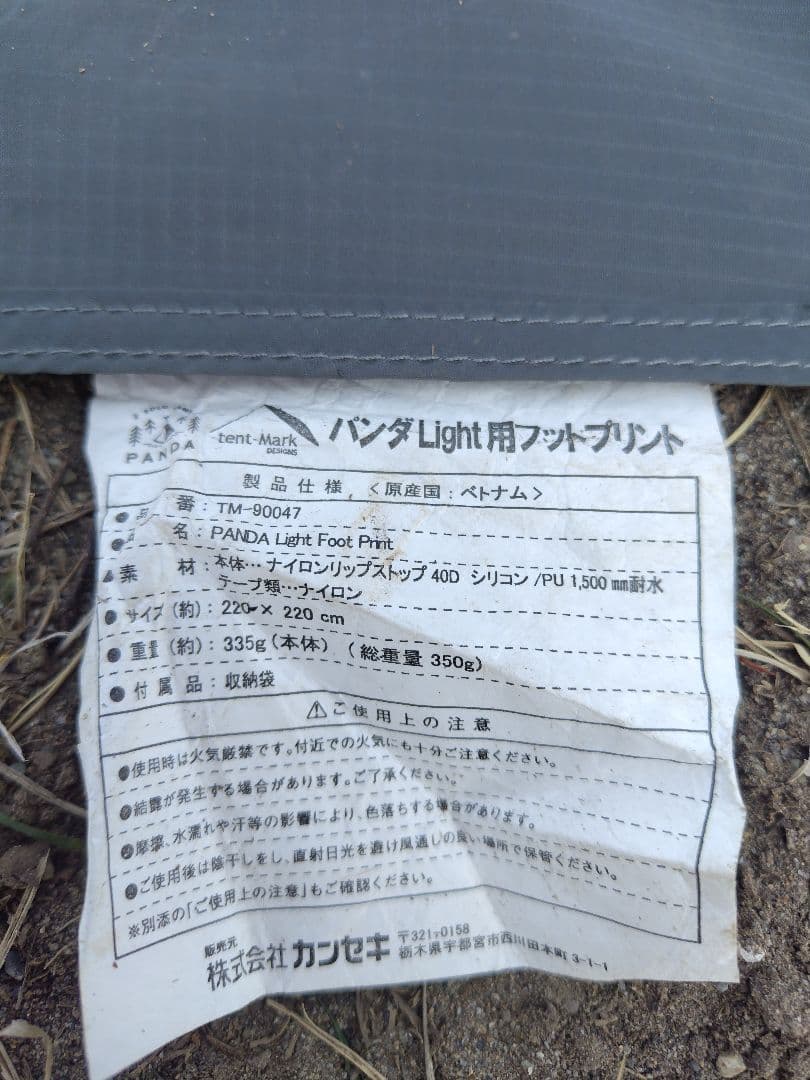 PANDA
tent-Mark
DESIGNS
パンダLight用フットプリント
製品仕様 <原産国:ベトナム>
● 番:TM-90047
● 名:PANDA Light Foot Print
● 素 材:本体…ナイロンリップストップ 40D シリコン/PU 1,500 mm耐水
テープ類…ナイロン
● サイズ(約):220 × 220 cm
● 重量(約):335g(本体) (総重量 350g)
● 付属品:収納袋
⚠ご使用上の注意
●使用時は火気厳禁です。付近での火気にも十分ご注意ください。
●結露が発生する場合があります。ご了承ください。
●摩擦、水濡れや汗等の影響により、色落ちする場合があります。
●ご使用後は陰干しをし、直射日光を避け風通しの良い場所で保管ください。
※別添の「ご使用上の注意」もご確認ください。
販売元
株式会社 カンセキ
〒321-0158
栃木県宇都宮市西川田本町 3-1-1